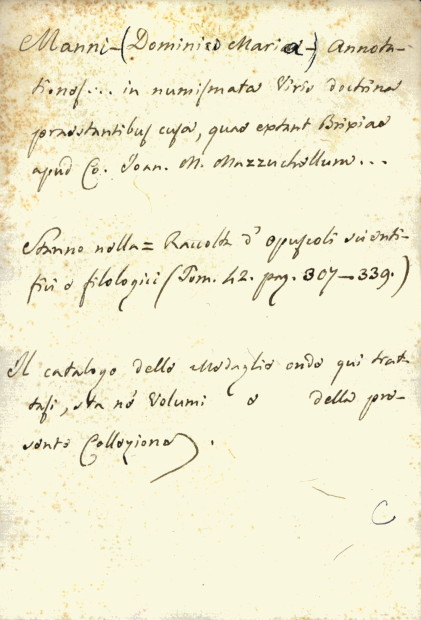 Manni-(Dominici Maria-) Annota-
tiones... in numismata Viris doctrina
praestantibus cusa, quae extant Brixiae
apud Co. Joan. M. Mazzuchellum...
Stanno nella= Raccolta d' opuscoli scienti-
fici e filologici (Tom. 42. pag. 307-339.)
Il catalogo delle Medaglie onde qui trat-
tasi, sta ne' Volumi e della pre-
sente Collezione.
C